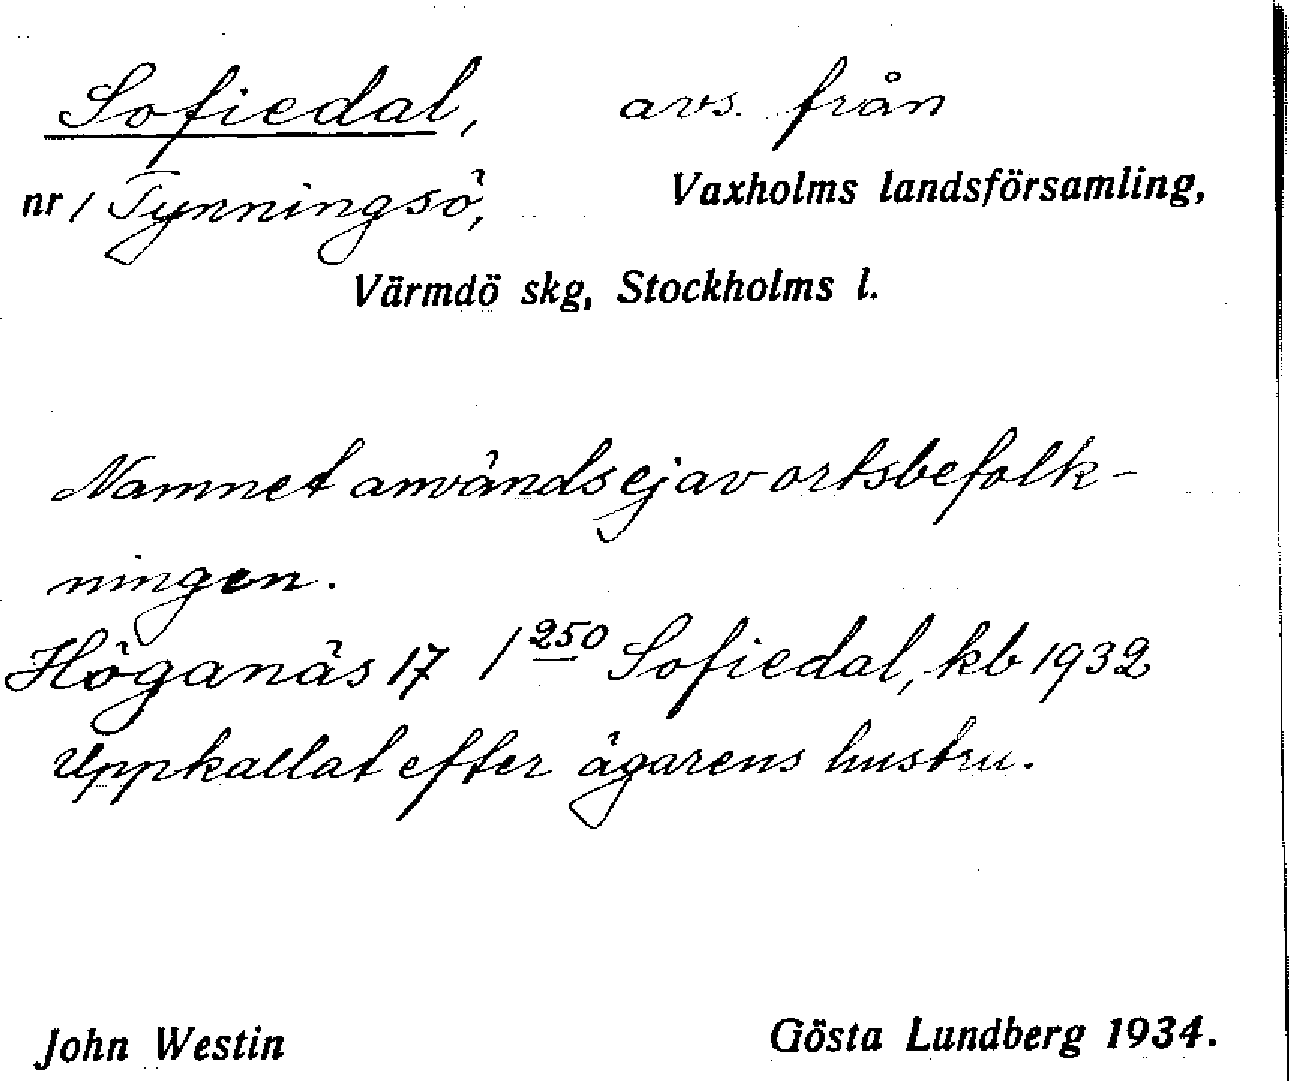 Sofiedal, avs. från
nr 1 Tynningsö, Vaxholms landsförsamling,
Värmdö skg, Stockholms l.
Namnet används ej av ortsbefolk-
ningen.
Höganäs 17 1 250 Sofiedal, kb 1932
Uppkallat efter ägarens hustru.
John Westin Gösta Lundberg 1934.